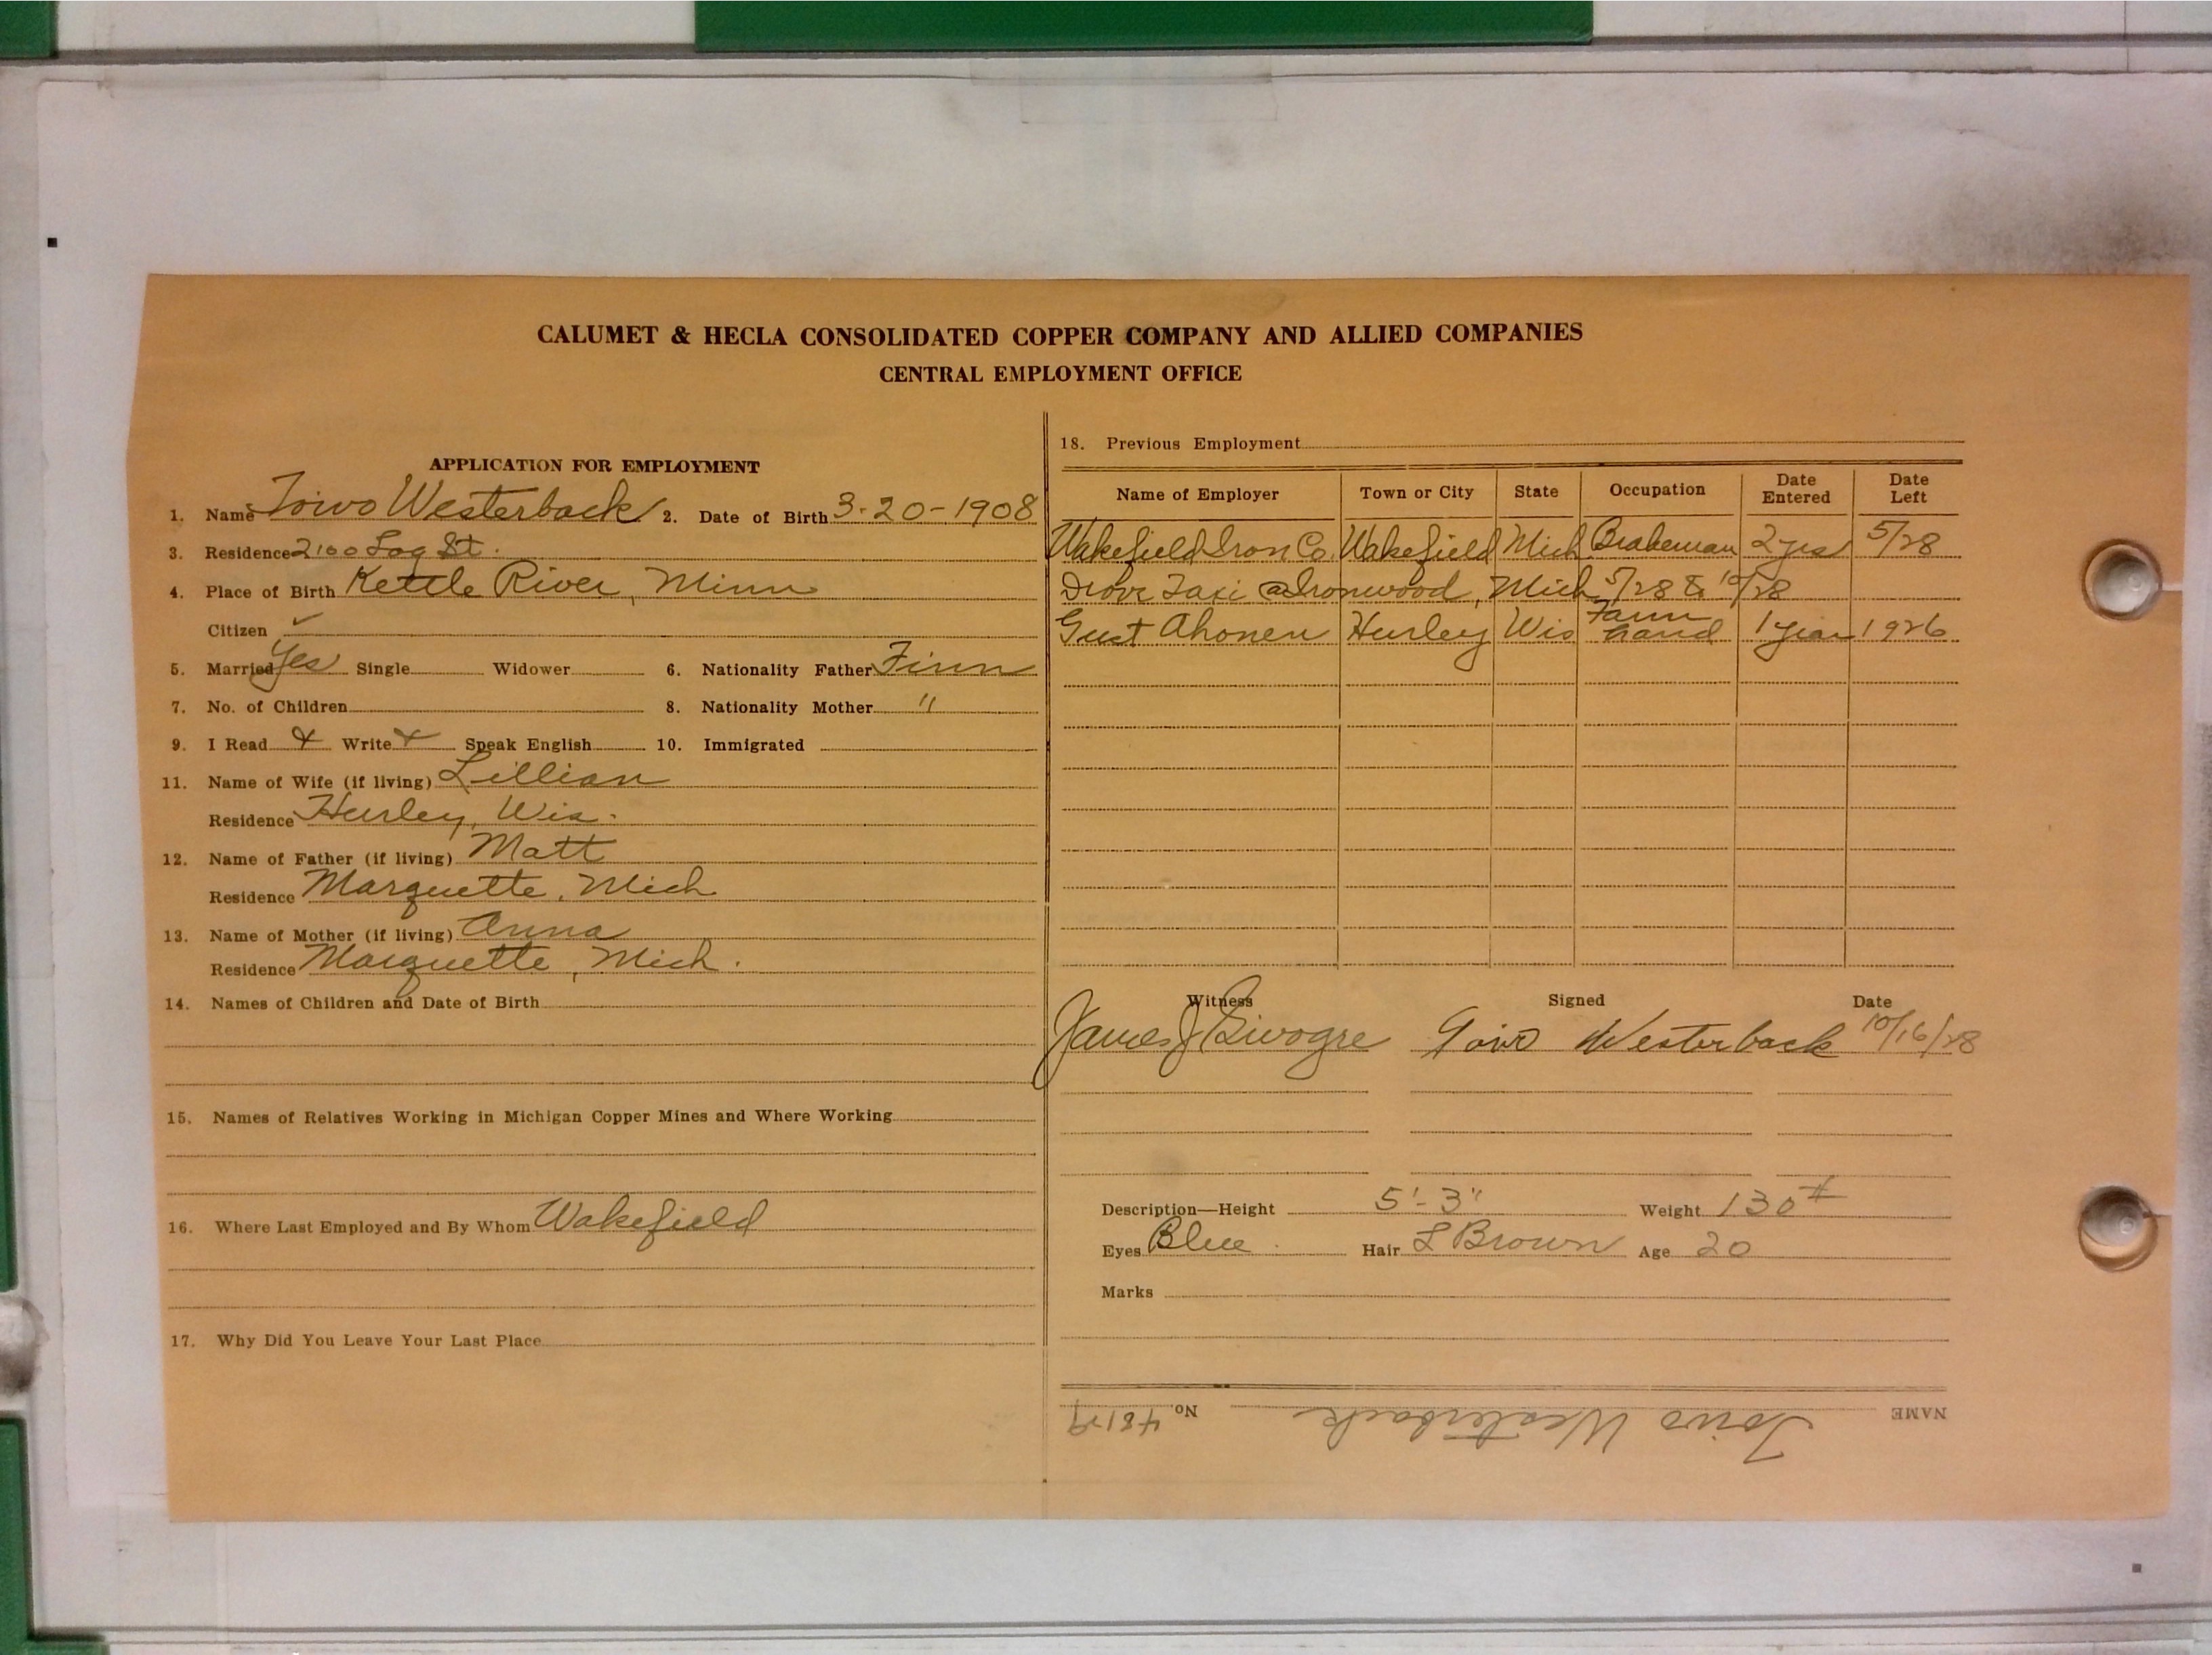 CALUMET & HECLA CONSOLIDATED COPPER COMPANY AND ALLIED COMPANIES
CENTRAL EMPLOYMENT OFFICE
APPLICATION FOR EMPLOYMENT
1. Name Toivo Westerback 2. Date of Birth 3-20-1908
3. Residence 2100 Log St.
4. Place of Birth Kettle River, Minn
Citizen ✓
5. Married Yes Single Widower 6. Nationality Father Finn
7. No. of Children 8. Nationality Mother "
9. I Read Write Speak English 10. Immigrated
11. Name of Wife (if living) Lillian
Residence Hurley, Wis.
12. Name of Father (if living) Matt
Residence Marquette, Mich
13. Name of Mother (if living) Anna
Residence Marquette, Mich.
14. Names of Children and Date of Birth
15. Names of Relatives Working in Michigan Copper Mines and Where Working
16. Where Last Employed and By Whom Wakefield
17. Why Did You Leave Your Last Place
18. Previous Employment
Name of Employer Town or City State Occupation Date Entered Date Left
Wakefield Iron Co. Wakefield Mich Brakeman 2 yrs 5/28
Drove Taxi @ Ironwood, Mich 5/28 to 10/28
Gust Ahonen Hurley Wis Farm hand 1 year 1926
Witness Signed Date
James J Toivo Westerback 10/16/28
Description—Height 5'-3" Weight 130#
Eyes Blue Hair L Brown Age 20
Marks
NAME Toivo Westerback No. 48129